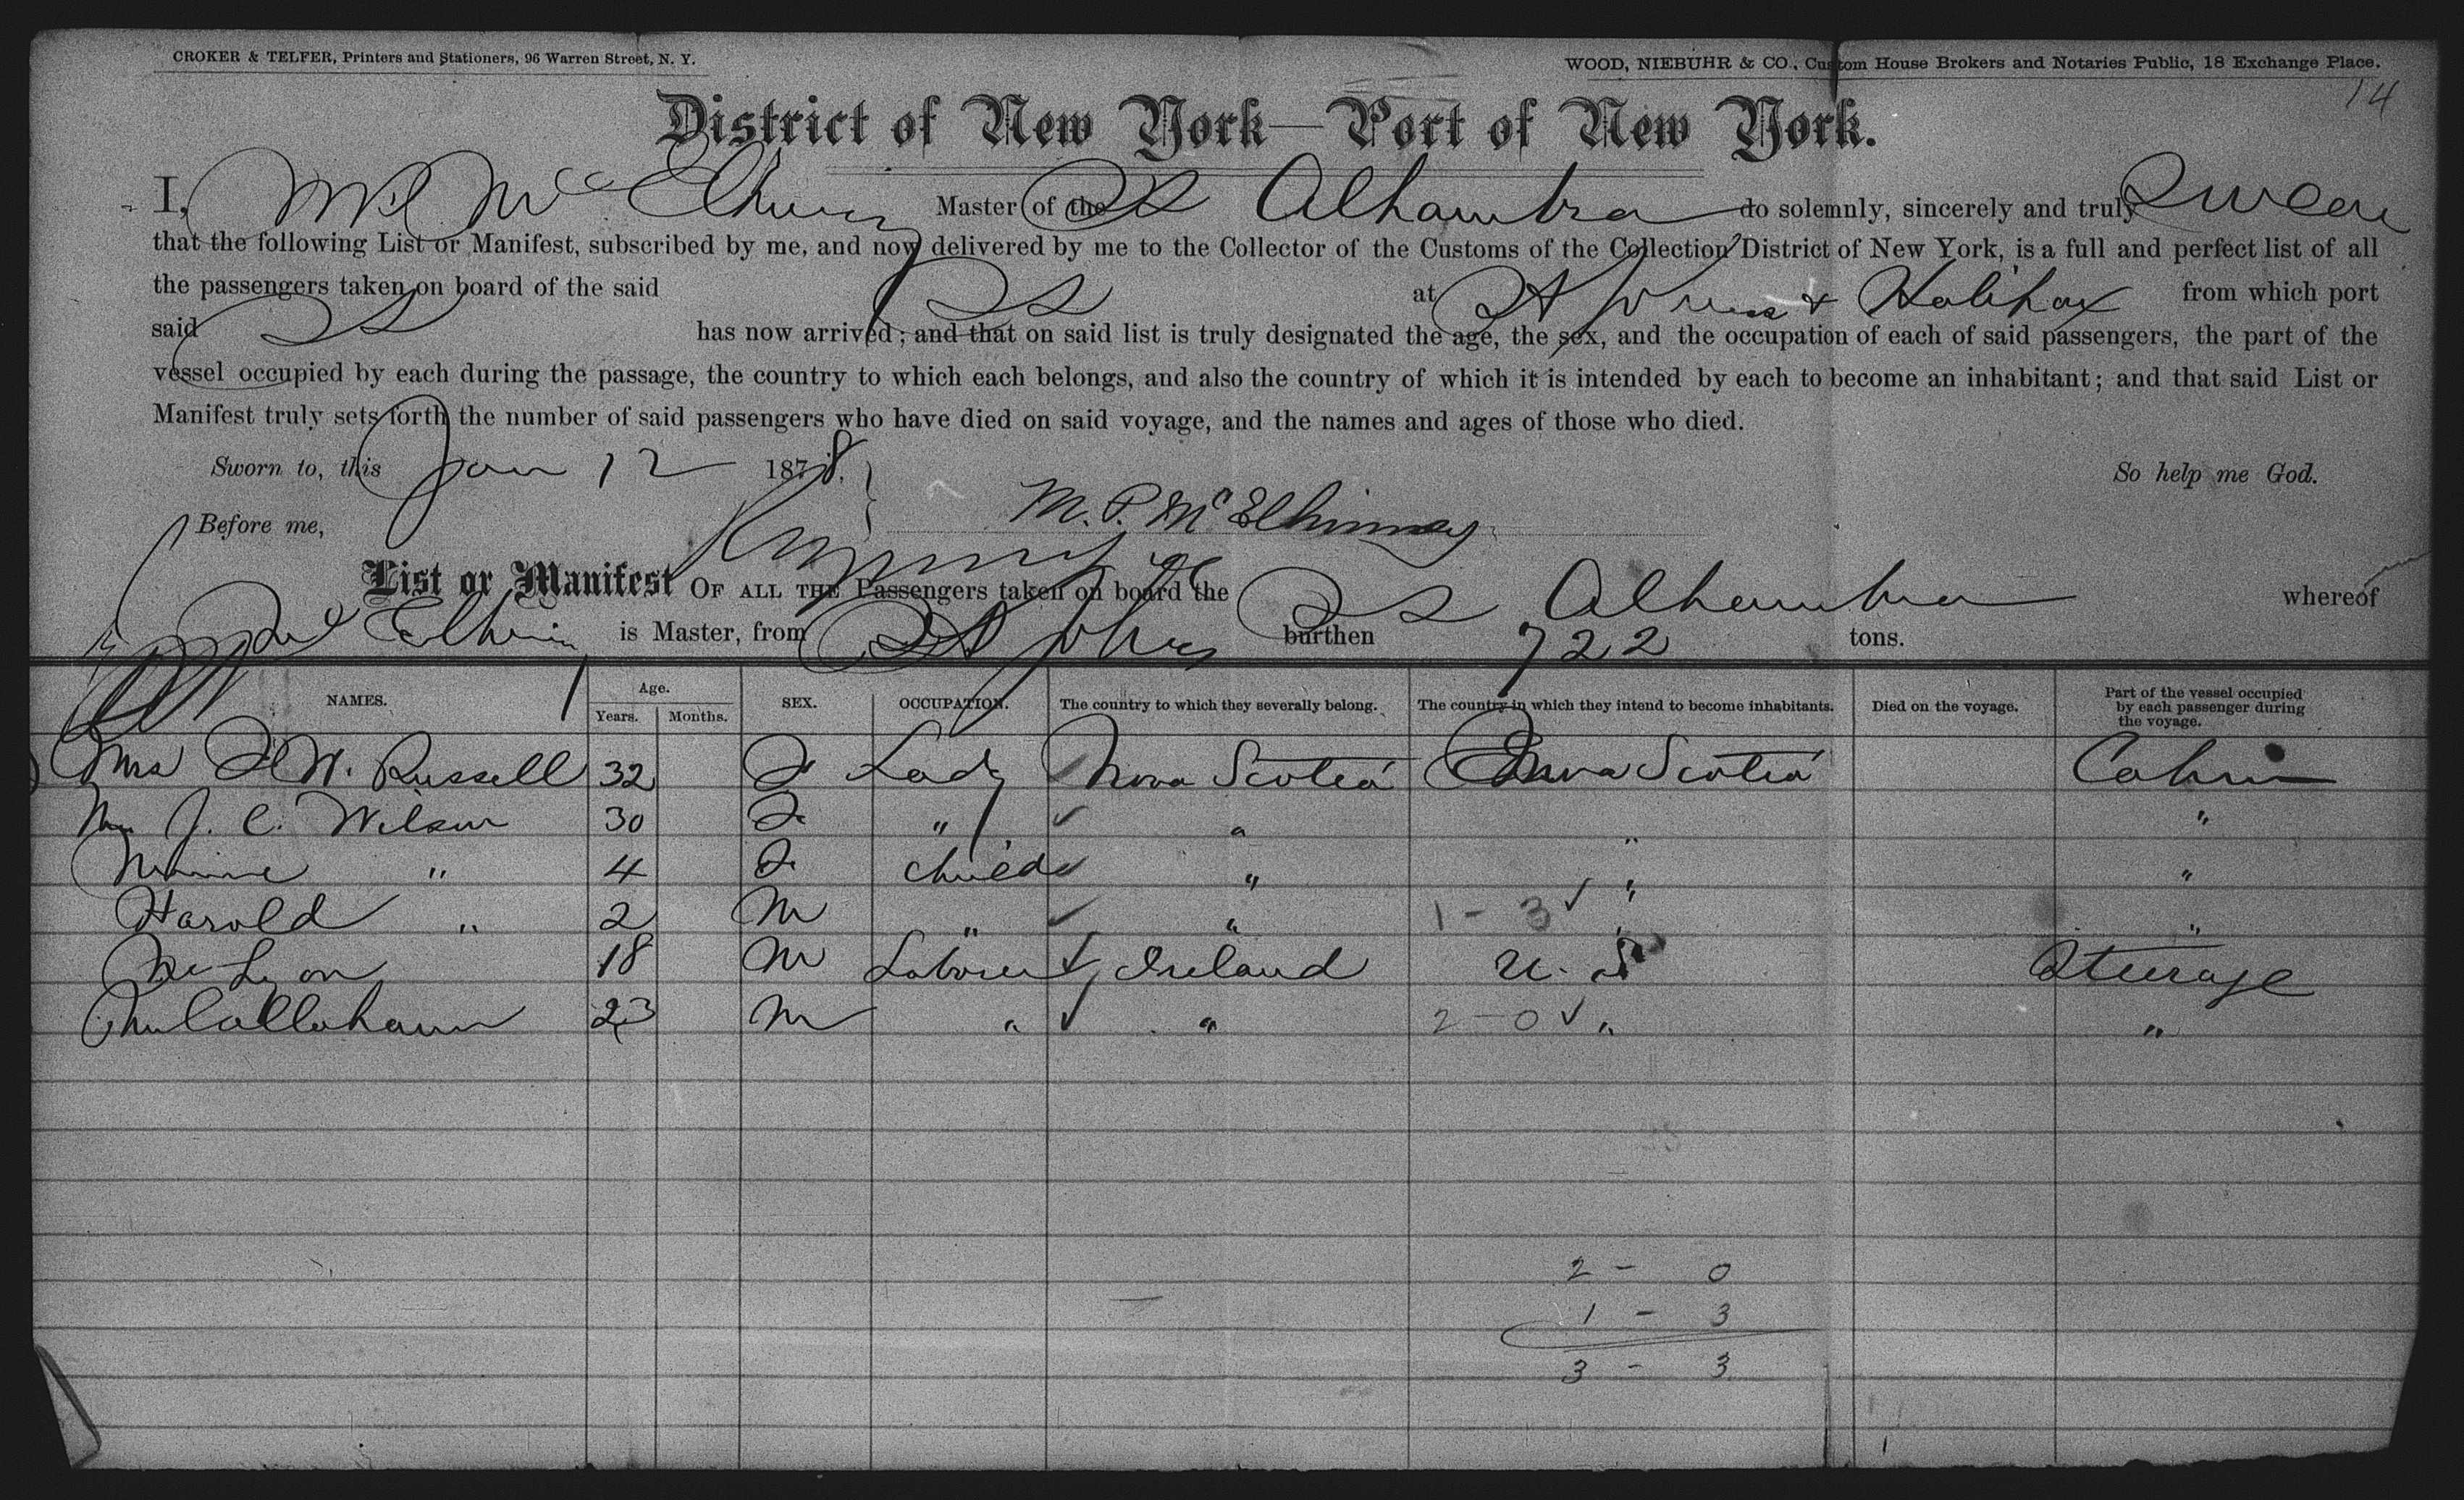 CROKER & TELFER, Printers and Stationers, 96 Warren Street, N. Y.
WOOD, NIEBUHR & CO., Custom House Brokers and Notaries Public, 18 Exchange Place.
14
District of New York—Port of New York.
I, Mc Elhinney Master of the SS Alhambra do solemnly, sincerely and truly Swear
that the following List or Manifest, subscribed by me, and now delivered by me to the Collector of the Customs of the Collection District of New York, is a full and perfect list of all
the passengers taken on board of the said SS at St Johns & Halifax from which port
said SS has now arrived; and that on said list is truly designated the age, the sex, and the occupation of each of said passengers, the part of the
vessel occupied by each during the passage, the country to which each belongs, and also the country of which it is intended by each to become an inhabitant; and that said List or
Manifest truly sets forth the number of said passengers who have died on said voyage, and the names and ages of those who died.
Sworn to, this Jan 12 1878. So help me God.
Before me, M. P. McElhinney
List or Manifest OF ALL THE Passengers taken on board the SS Alhambra whereof
is Master, from St Johns burthen 722 tons.
NAMES. Age. Years. Months. SEX. OCCUPATION. The country to which they severally belong. The country in which they intend to become inhabitants. Died on the voyage. Part of the vessel occupied by each passenger during the voyage.
Mrs W. Russell 32 F Lady Nova Scotia Nova Scotia Cabin
J. C. Wilson 30 F " " " "
Minnie " 4 F Child " " "
Harold " 2 M " " 1 - 3 " "
Mc Lyon 18 M Laborer Ireland U. S Steerage
Callahann 23 M " " 2 - 0 " "
2 - 0
1 - 3
3 - 3